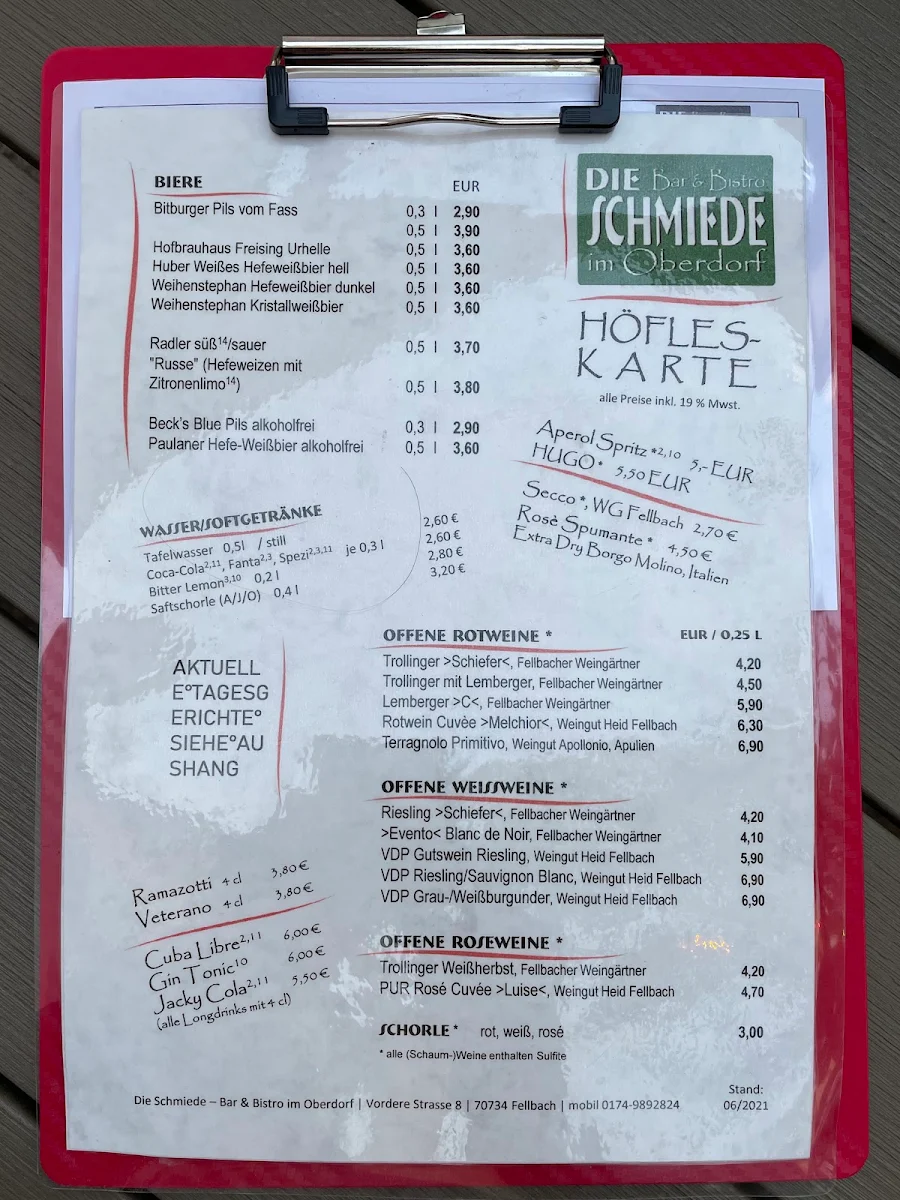 BIERE
EUR
Bitburger Pils vom Fass 0,3 l 2,90
0,5 l 3,90
Hofbrauhaus Freising Urhelle 0,5 l 3,60
Huber Weißes Hefeweißbier hell 0,5 l 3,60
Weihenstephan Hefeweißbier dunkel 0,5 l 3,60
Weihenstephan Kristallweißbier 0,5 l 3,60
Radler süß¹⁴/sauer 0,5 l 3,70
"Russe" (Hefeweizen mit
Zitronenlimo¹⁴) 0,5 l 3,80
Beck's Blue Pils alkoholfrei 0,3 l 2,90
Paulaner Hefe-Weißbier alkoholfrei 0,5 l 3,60
DIE Bar & Bistro
SCHMIEDE
im Oberdorf
HÖFLES-
KARTE
alle Preise inkl. 19 % Mwst.
Aperol Spritz *²,¹⁰ 5,- EUR
HUGO * 5,50 EUR
Secco *, WG Fellbach 2,70 €
Rosè Spumante * 4,50 €
Extra Dry Borgo Molino, Italien
WASSER/SOFTGETRÄNKE
Tafelwasser 0,5l / still 2,60 €
Coca-Cola²,¹¹, Fanta²,³, Spezi²,³,¹¹ je 0,3 l 2,60 €
Bitter Lemon³,¹⁰ 0,2 l 2,80 €
Saftschorle (A/J/O) 0,4 l 3,20 €
AKTUELL
E°TAGESG
ERICHTE°
SIEHE°AU
SHANG
OFFENE ROTWEINE * EUR / 0,25 L
Trollinger >Schiefer<, Fellbacher Weingärtner 4,20
Trollinger mit Lemberger, Fellbacher Weingärtner 4,50
Lemberger >C<, Fellbacher Weingärtner 5,90
Rotwein Cuvèe >Melchior<, Weingut Heid Fellbach 6,30
Terragnolo Primitivo, Weingut Apollonio, Apulien 6,90
OFFENE WEISSWEINE *
Riesling >Schiefer<, Fellbacher Weingärtner 4,20
>Evento< Blanc de Noir, Fellbacher Weingärtner 4,10
VDP Gutswein Riesling, Weingut Heid Fellbach 5,90
VDP Riesling/Sauvignon Blanc, Weingut Heid Fellbach 6,90
VDP Grau-/Weißburgunder, Weingut Heid Fellbach 6,90
Ramazotti 4 cl 3,80 €
Veterano 4 cl 3,80 €
Cuba Libre²,¹¹ 6,00 €
Gin Tonic¹⁰ 6,00 €
Jacky Cola²,¹¹ 5,50 €
(alle Longdrinks mit 4 cl)
OFFENE ROSEWEINE *
Trollinger Weißherbst, Fellbacher Weingärtner 4,20
PUR Rosé Cuvée >Luise<, Weingut Heid Fellbach 4,70
SCHORLE * rot, weiß, rosé 3,00
* alle (Schaum-)Weine enthalten Sulfite
Die Schmiede – Bar & Bistro im Oberdorf | Vordere Strasse 8 | 70734 Fellbach | mobil 0174-9892824
Stand:
06/2021